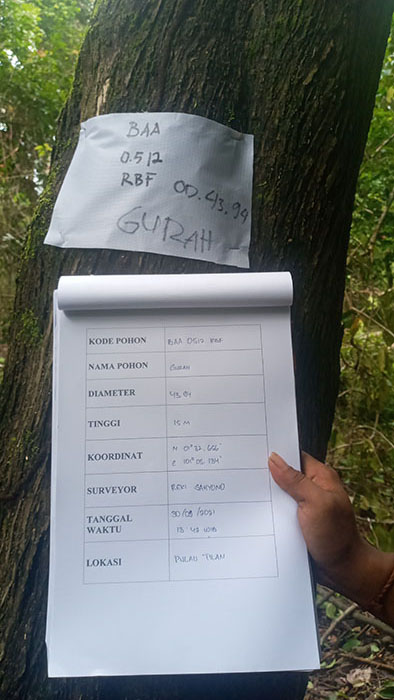 BAA
0.512
RBF OD. 43.94
GURAH
KODE POHON BAA 0512 RBF
NAMA POHON GURAH
DIAMETER 43.94
TINGGI 15 M
KOORDINAT N 0° 32. 666'
E 101° 05. 134'
SURVEYOR
TANGGAL 30/09/2021
WAKTU 13 42 WIB
LOKASI PULAU TILAN